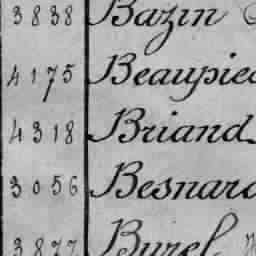 3838 Bazin
4175 Beaupied
4318 Briand
3056 Besnard
3877 Burel